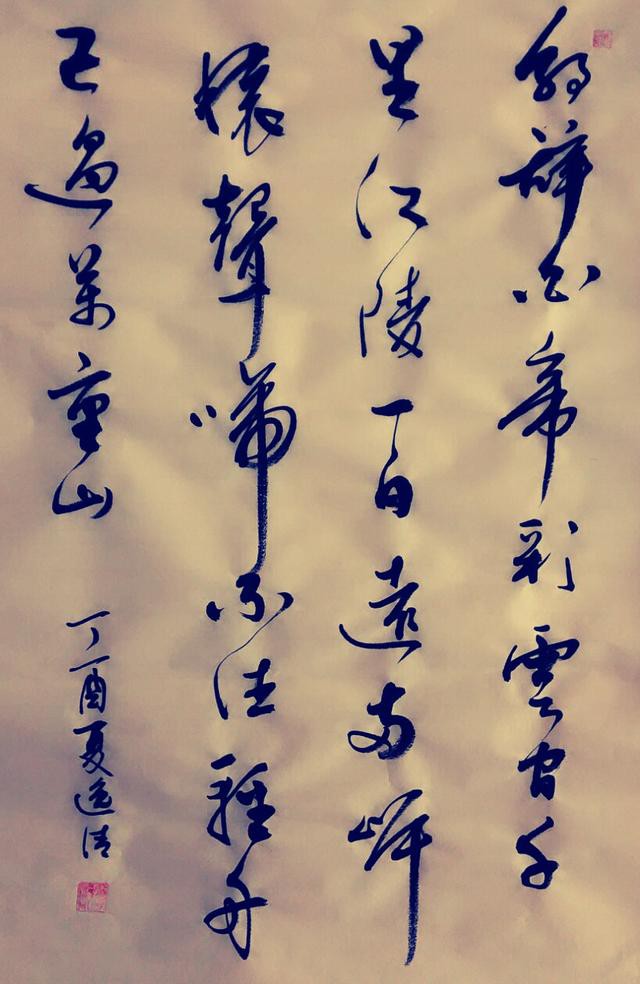 朝辭白帝彩雲間千
里江陵一日還兩岸
猿聲啼不住輕舟
已過萬重山
丁酉夏逸清